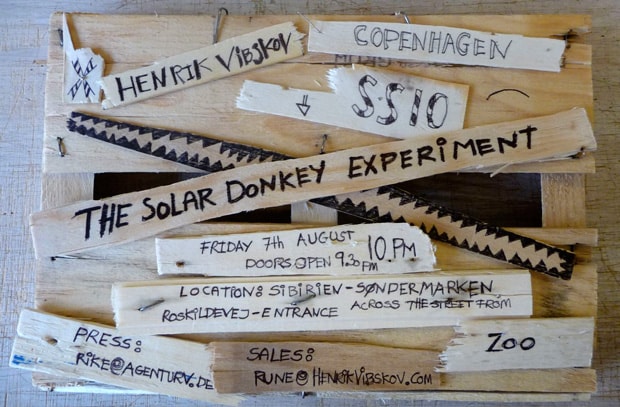 HENRIK VIBSKOV
COPENHAGEN
SS10
THE SOLAR DONKEY EXPERIMENT
FRIDAY 7th AUGUST 10.PM
DOORS OPEN 9.30 PM
LOCATION: SIBIRIEN - SØNDERMARKEN
ROSKILDEVEJ - ENTRANCE ACROSS THE STREET FROM
ZOO
PRESS:
RIKE@AGENTURV.DE
SALES:
RUNE@HENRIKVIBSKOV.COM